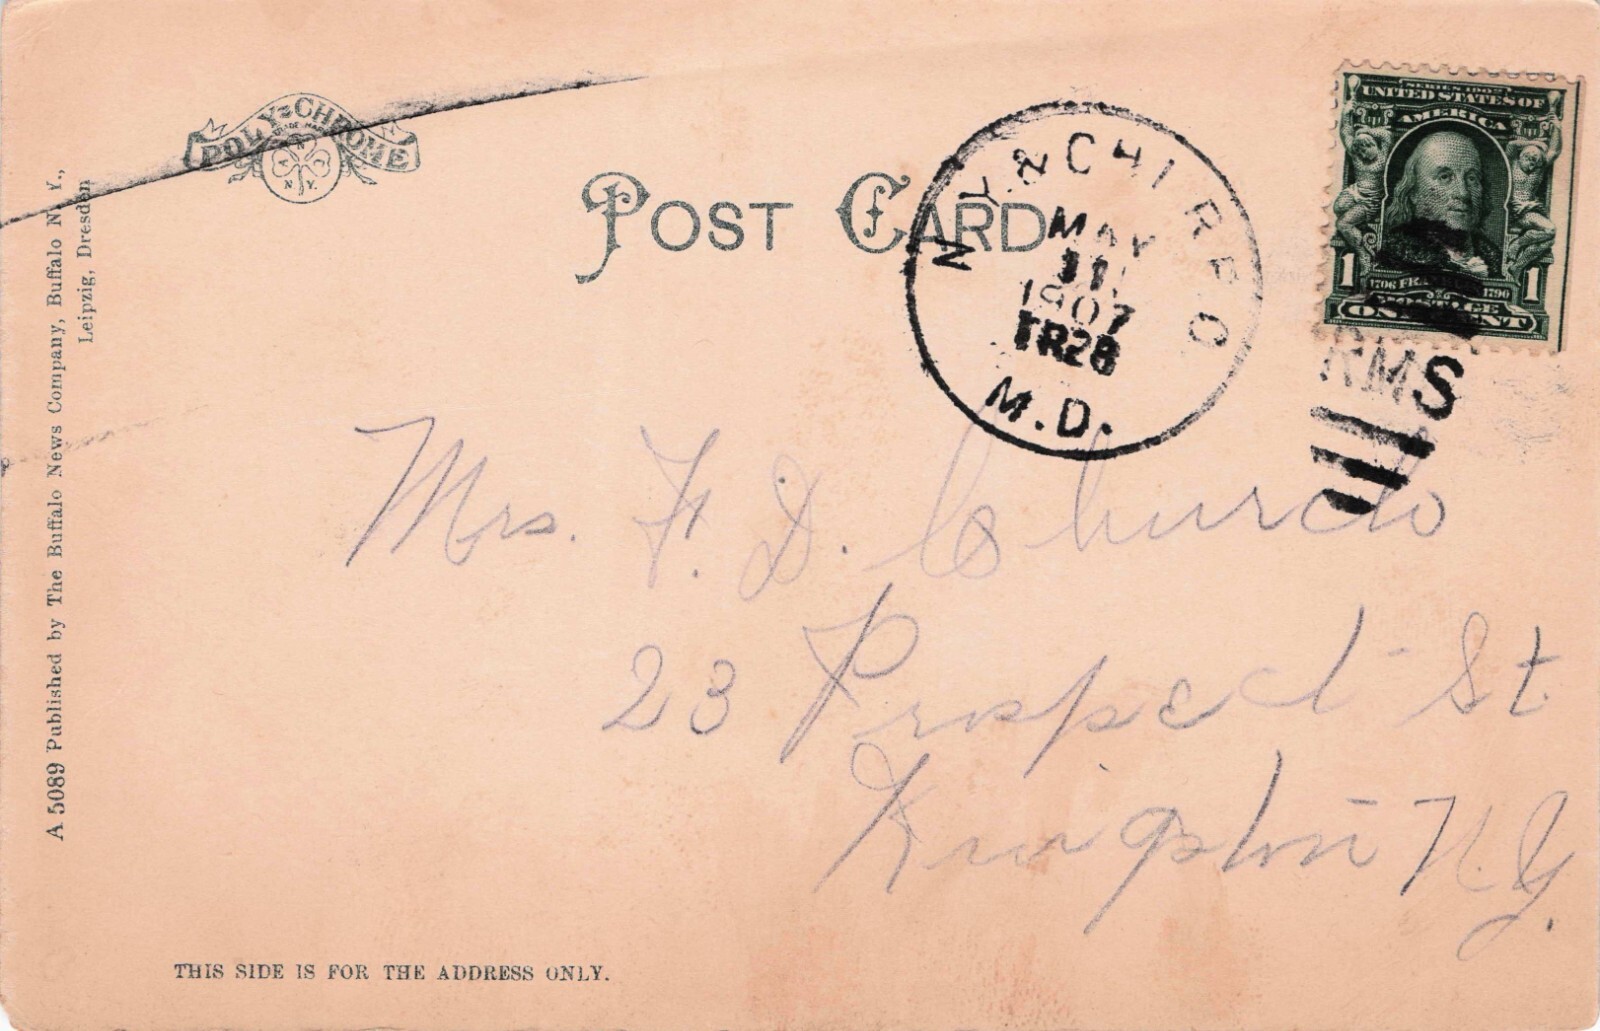 POLY-CHROME
TRADE MARK
A N C
N.Y.
POST CARD
N.Y. & CHI. R.P.O.
MAY
11
1907
TR28
M.D.
SERIES 1902
UNITED STATES OF
AMERICA
1 1
1706 FRANKLIN 1790
POSTAGE
ONE CENT
RMS
Mrs. F. D. Church
23 Prospect St
Kingston N.Y.
A 5089 Published by The Buffalo News Company, Buffalo N.Y.,
Leipzig, Dresden
THIS SIDE IS FOR THE ADDRESS ONLY.